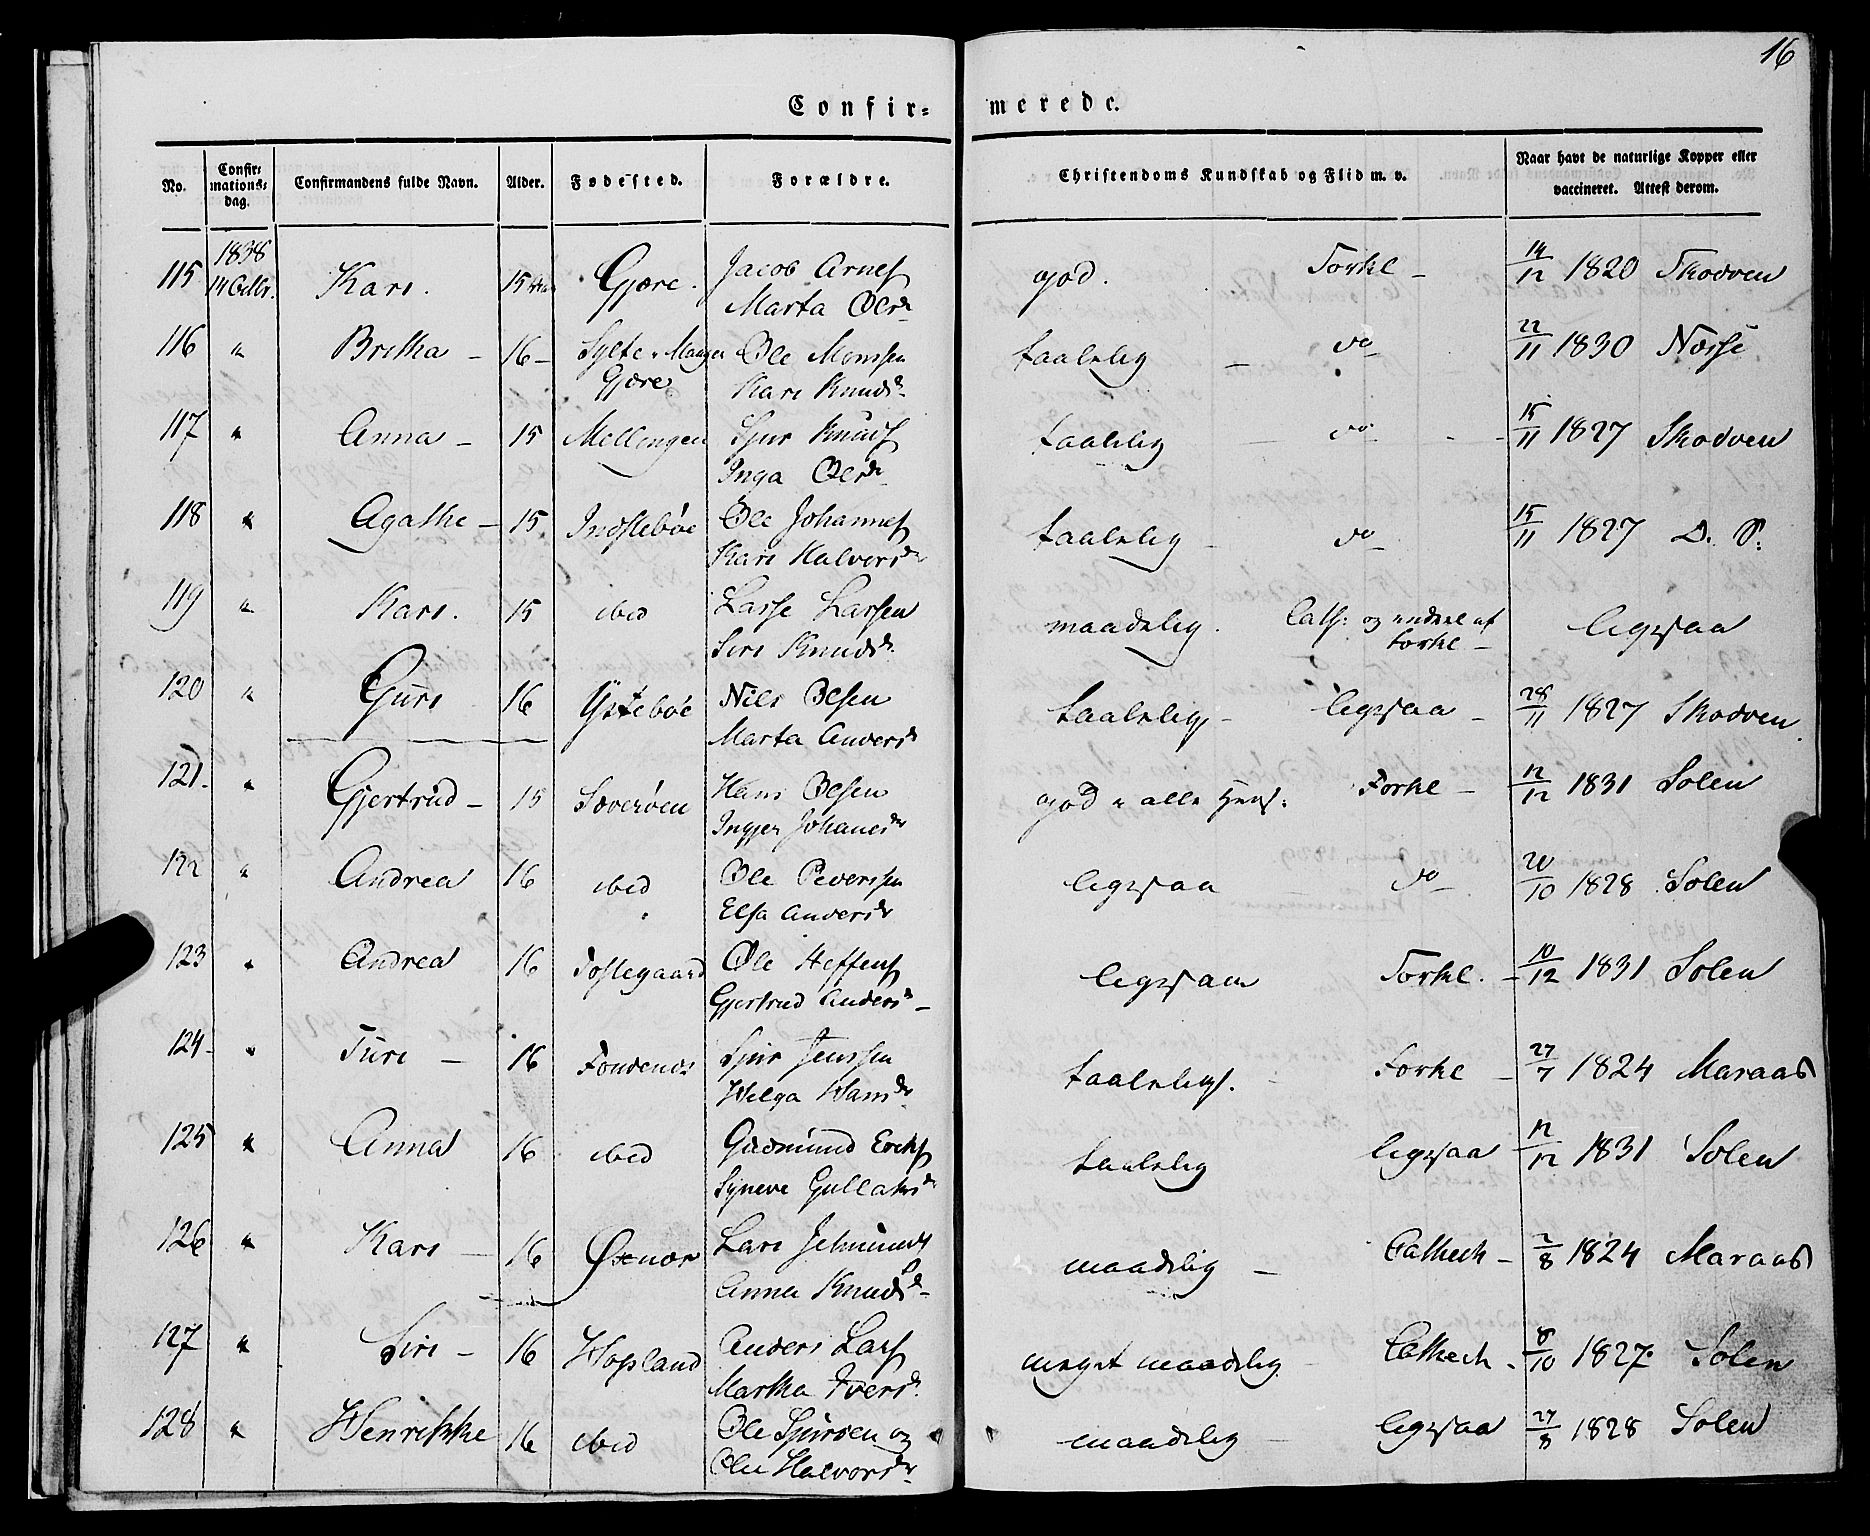 16
Confir= merede.
No. Confir= mations= dag. Confirmandens fulde Navn. Alder. Fødested. Forældre. Christendoms Kundskab og Flid m. v. Naar havt de naturlige Kopper eller vaccineret. Attest derom.
1838
115 14 Octbr. Kari. 15 Gjære. Jacob Arnes god. Forkl - 14/12 1820 Skodven
Marta Olsd
116 " Britha - 16 - Sylte Ole Monssen taalelig - do 22/11 1830 Nesse
Gjære Kari Knudsd
117 " Anna - 15 Mellingen Sjur Knuds taalelig - do - 15/11 1827 Skodven
Inga Olsd
118 " Agathe - 15 Indstebøe Ole Johannes taalelig - do 15/11 1827 D. S:
Kari Halversd
119 " Kari. 15 ibid Lasse Larsen maadelig. Cath: og endeel af Forkl - ligesaa
Siri Knudsd
120 " Guri 16 Ystebøe Nils Olsen taalelig - ligesaa - 28/11 1827 Skodven.
Marta Andersd
121. " Gjertrud - 15 Sæverøen Hans Olsen god i alle Hens: Forkl - 12/12 1831 Solen
Ingjer Johanesd
122 " Andrea 16 ibid Ole Pederssen ligesaa do 20/10 1828 Solen
Elsa Andersd
123 " Andrea 16 Toftegaard Ole Steffens ligesaa Forkl. - 10/12 1831 Solen
Gjertrud Andersd -
124 - " Turi - 16 Fondenæs Sjur Jenssen taalelig. Forkl - 27/7 1824 Maraas
Helga Hansd
125 " Anna 16 ibid Gudmund Eriks taalelig ligesaa - 12/12 1831 Solen
Syneve Gullaksd
126 " Kari - 16 Øxnær Lars Jetmunds maadelig - Cathech - 2/8 1824 Maraas
Anna Knudsd -
127 " Siri - 16 Hopland Anders Lars meget maadelig - Cathech. 8/10 1827 Solen
Martha Iversd
128 " Henrikke 16 ibid Ole Sjursen og maadelig - ligesaa 27/8 1828 Solen
Halvorsd